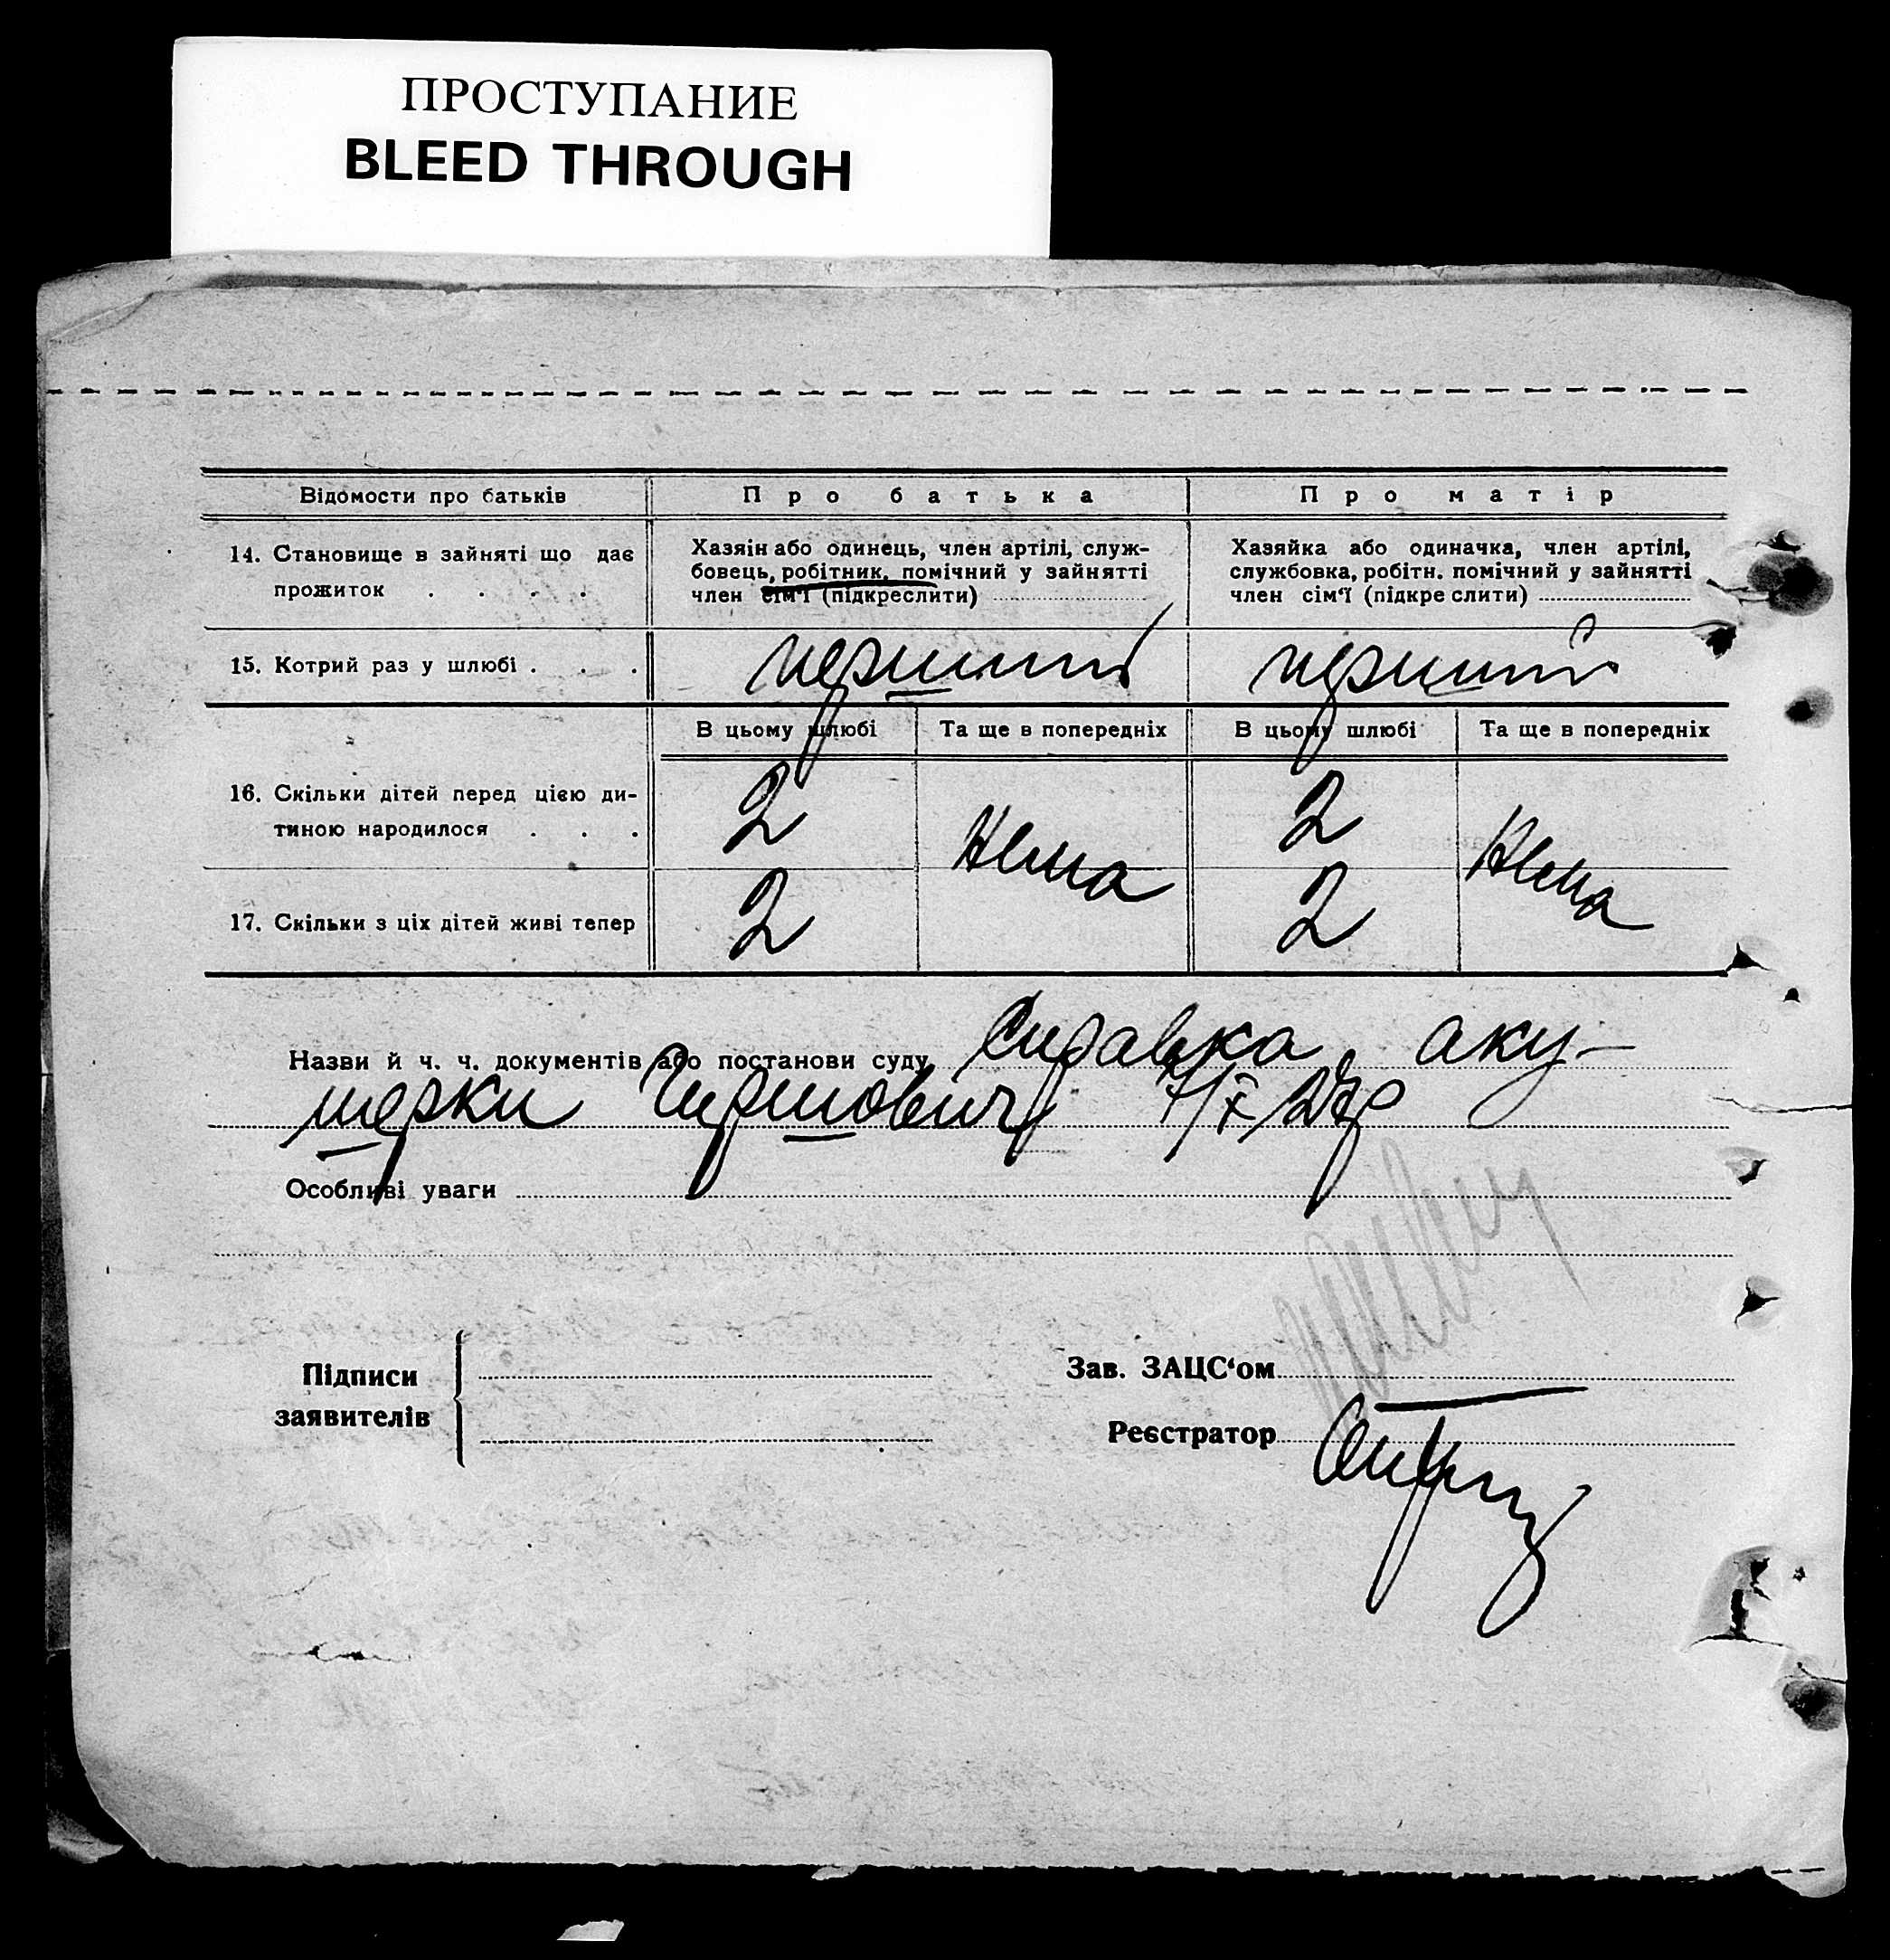 ПРОСТУПАНИЕ
BLEED THROUGH
Відомости про батьків
Про батька
Про матір
14. Становище в зайняті що дає
прожиток . . . .
Хазяін або одинець, член артілі, служ-
бовець, робітник, помічний у зайнятті
член сім'ї (підкреслити)
Хазяйка або одиначка, член артілі,
службовка, робітн. помічний у зайнятті
член сім'ї (підкре слити)
15. Котрий раз у шлюбі . . .
перший
перший
В цьому шлюбі
Та ще в попередніх
В цьому шлюбі
Та ще в попередніх
16. Скільки дітей перед цією ди-
тиною народилося . . .
2
Нема
2
Нема
17. Скільки з ціх дітей живі тепер
2
2
Назви й ч. ч. документів або постанови суду Справка аку-
шерки Гиршович 7/X 27р
Особливі уваги
Підписи
заявителів
Зав. ЗАЦС'ом
Реєстратор